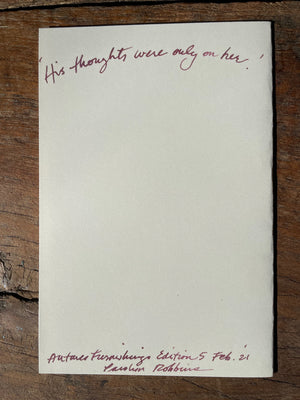 'His thoughts were only on her.'
Antares Furnishings Edition 5 Feb. '21
Robbins